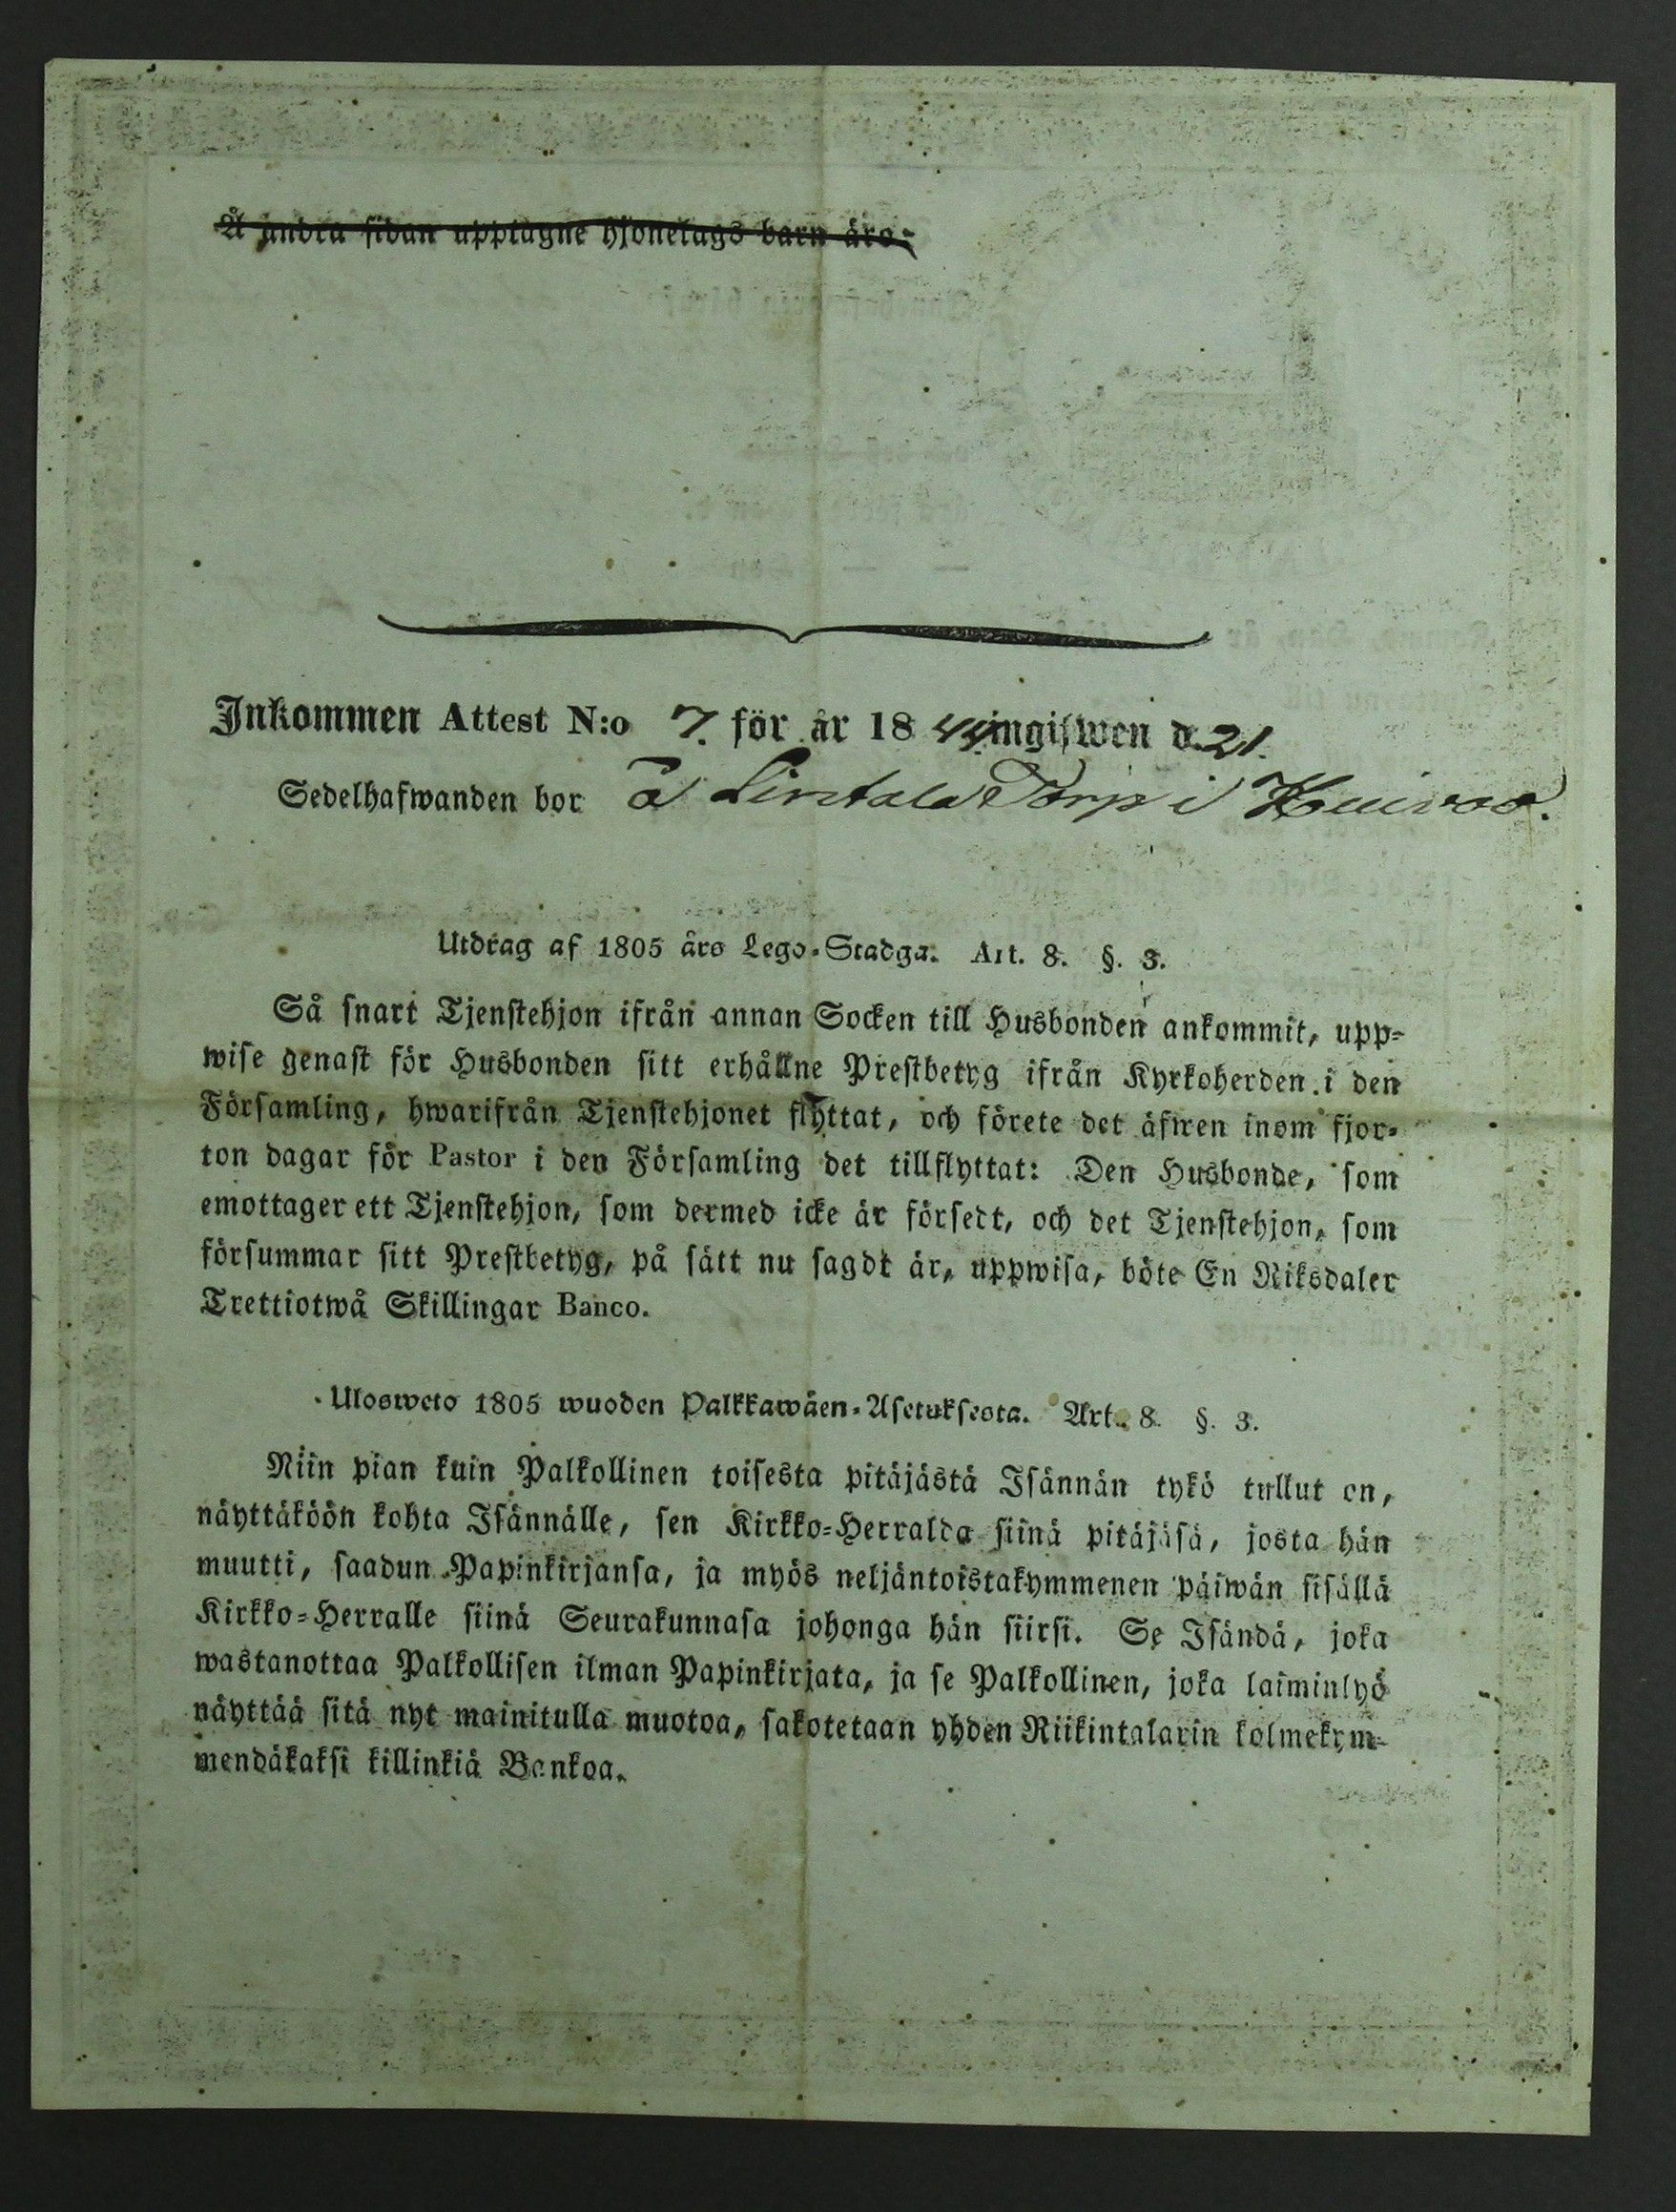 Å andra sidan upptagne hjonelags barn äro:
Inkommen Attest N:o 7. för år 18 44 ingifwen d. 21.
Sedelhafwanden bor å Lintala Torp i
Utdrag af 1805 års Lego-Stadga. Art. 8. §. 3.
Så snart Tjenstehjon ifrån annan Socken till Husbonden ankommit, upp-
wise genast för Husbonden sitt erhållne Prestbetyg ifrån Kyrkoherden i den
Församling, hwarifrån Tjenstehjonet flyttat, och förete det äfwen inom fjor-
ton dagar för Pastor i den Församling det tillflyttat: Den Husbonde, som
emottager ett Tjenstehjon, som dermed icke är försedt, och det Tjenstehjon, som
försummar sitt Prestbetyg, på sätt nu sagdt är, uppwisa, böte En Riksdaler
Trettiotwå Skillingar Banco.
Ulosweto 1805 wuoden Palkkawäen-Asetuksesta. Art. 8. §. 3.
Niin pian kuin Palkollinen toisesta pitäjästä Isännän tykö tullut on,
näyttäköön kohta Isännälle, sen Kirkko-Herralda siinä pitäjäsä, josta hän
muutti, saadun Papinkirjansa, ja myös neljäntoistakymmenen päiwän sisällä
Kirkko-Herralle siinä Seurakunnasa johonga hän siirsi. Se Isändä, joka
wastanottaa Palkollisen ilman Papinkirjata, ja se Palkollinen, joka laiminlyö
näyttää sitä nyt mainitulla muotoa, sakotetaan yhden Riikintalarin kolmekym-
mendäkaksi killinkiä Bankoa.